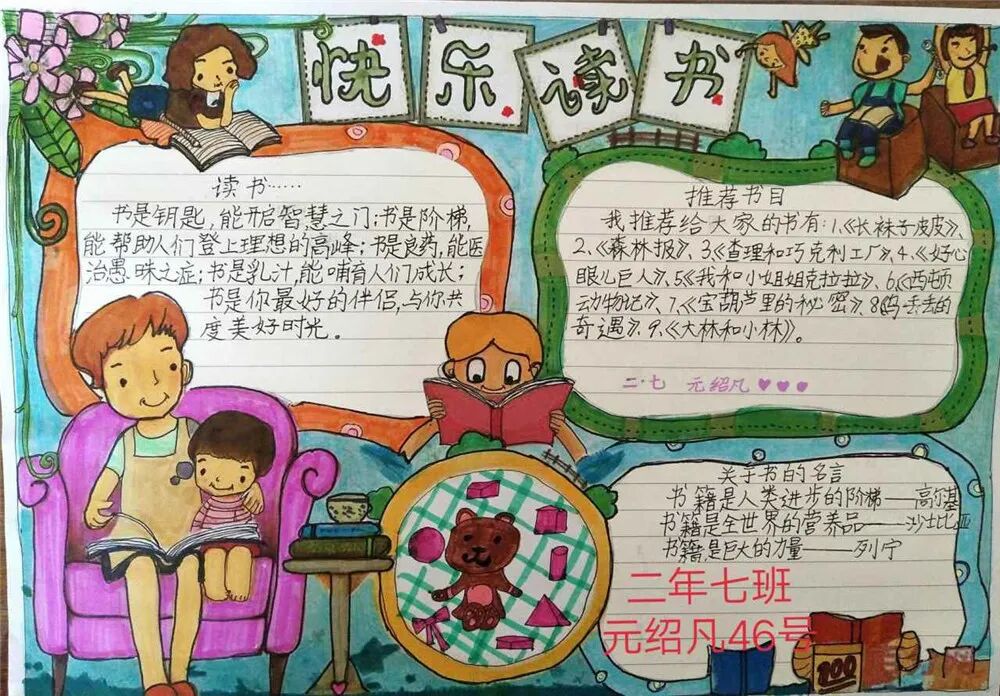 快乐读书
读书……
书是钥匙,能开启智慧之门;书是阶梯,
能帮助人们登上理想的高峰;书是良药,能医
治愚昧之症;书是乳汁,能哺育人们成长;
书是你最好的伴侣,与你共
度美好时光。
推荐书目
我推荐给大家的书有:1.《长袜子皮皮》、
2.《森林报》、3.《查理和巧克利工厂》、4.《好心
眼儿巨人》、5《我和小姐姐克拉拉》、6.《西顿
动物记》、7.《宝葫芦里的秘密》、8《乌丢丢的
奇遇》、9.《大林和小林》。
二·七 元绍凡
关于书的名言
书籍是人类进步的阶梯——高尔基
书籍是全世界的营养品——沙士比亚
书籍是巨大的力量——列宁
二年七班
元绍凡46号
100